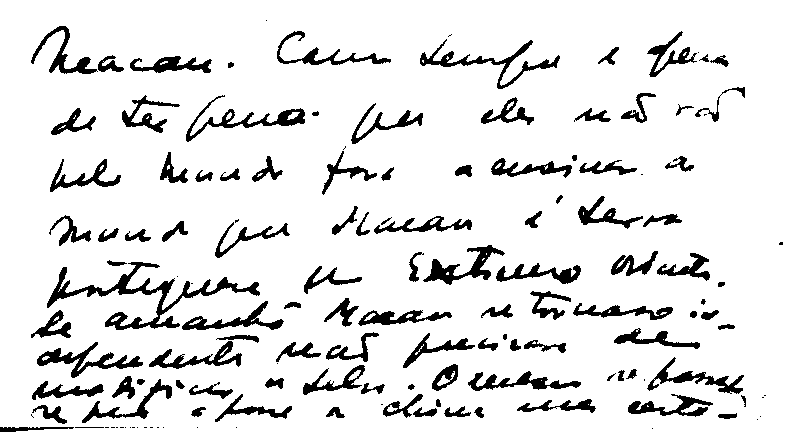 Macau. Como sempre é pena
de ter pena. que eles não vão
pelo mundo fora a ensinar ao
mundo que Macau é terra
portuguesa no Extremo Oriente.
Se amanhã Macau se tornasse in-
dependente não precisava de
modificar os selos. O mesmo se passa
se para a China uma carta